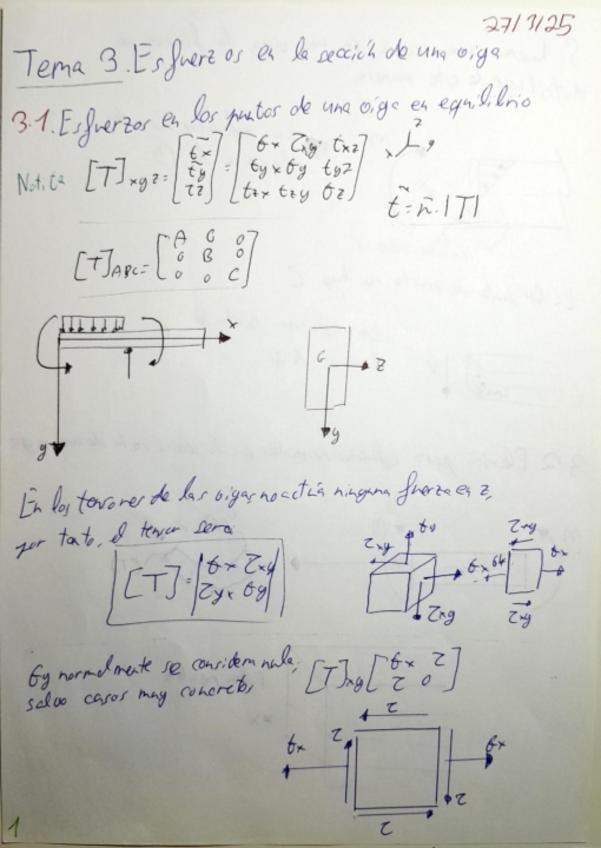 27/3/25
Tema 3. Esfuerzos en la sección de una viga
3.1. Esfuerzos en los puntos de una viga en equilibrio
[T]xyz = [t̄x t̄y τz] = [σx τxy txz
ty x σy tyz
tzx tzy σz]
z
x y
t̄ = n̄ · |T|
[T]ABC = [A 0 0
0 B 0
0 0 C]
x
y
G
z
y
En los tensores de las vigas no actúa ninguna fuerza en z,
por tanto, el tensor será
[T] = |σx τxy
τyx σy|
τxy
σx
τxy
τxy
σx
τxy
σy normalmente se considera nula,
salvo casos muy concretos
[T]xy [σx τ
τ 0]
τ
σx
τ
σx
τ
τ
1